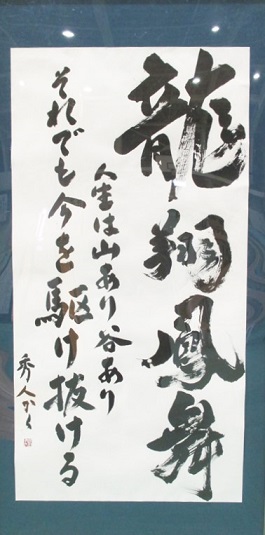 龍翔鳳舞
人生は山あり谷あり
それでも今を駆け抜ける
秀人かく